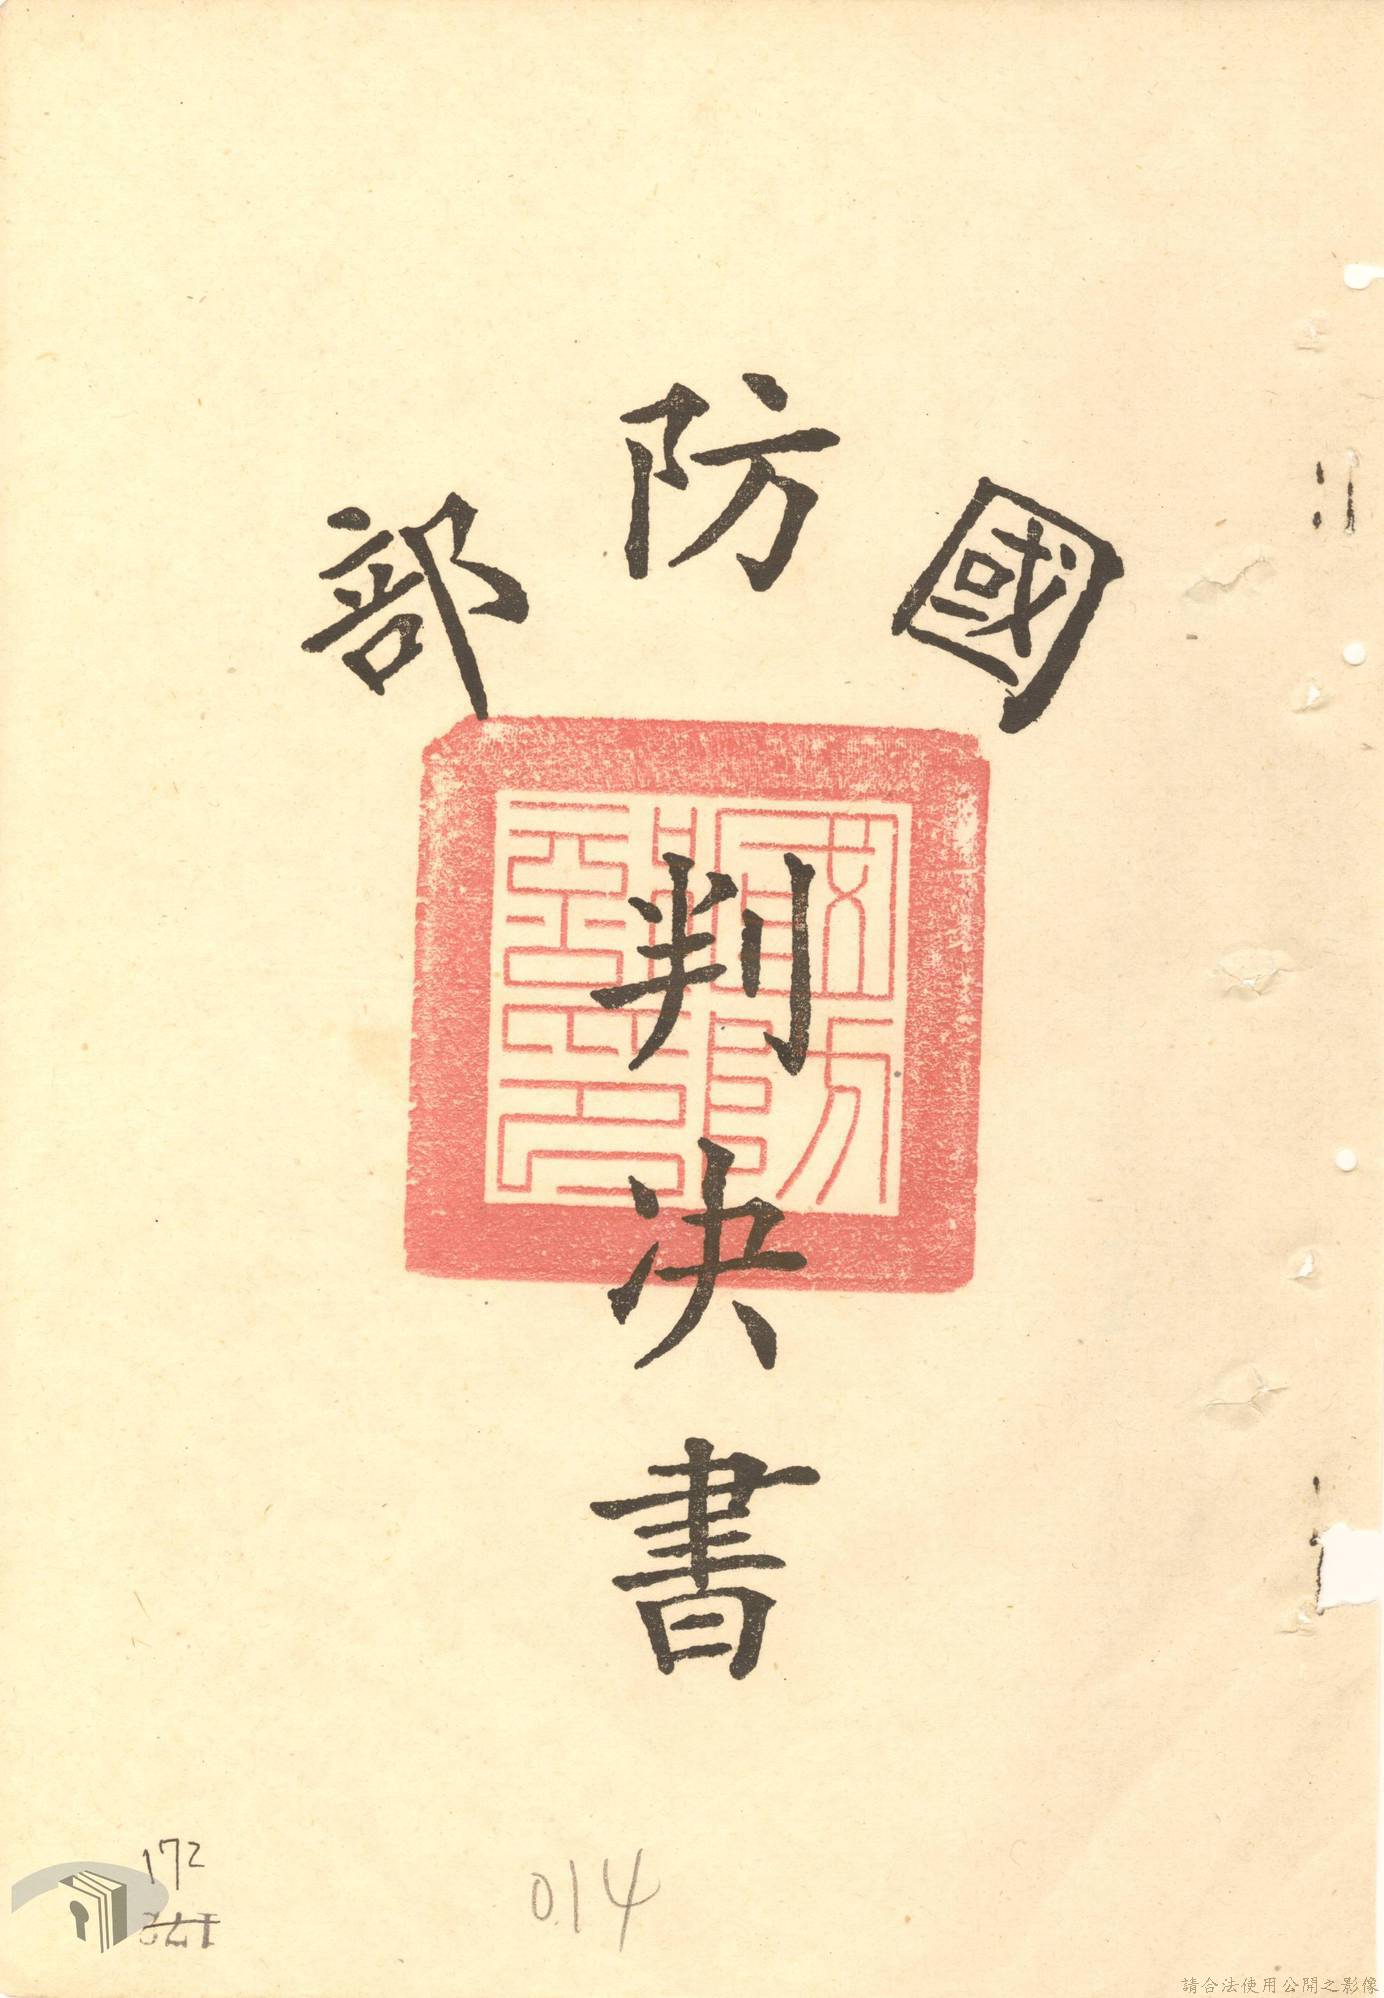 國防部
判決書
172
014
請合法使用公開之影像